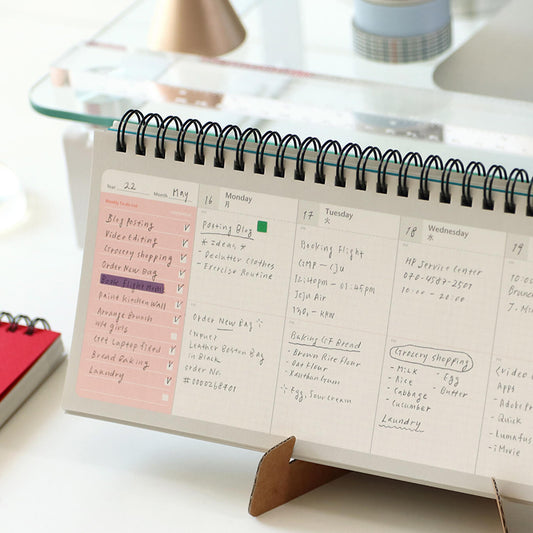 Year 22 Month May
Weekly To do list
Blog Posting
Video Editing
Grocery shopping
Order New Bag
Book Flight
Paint Kitchen Wall
Arrange Brunch
w/ girls
Get Laptop fixed
Bread Baking
Laundry
16 Monday
月
Posting Blog
* Ideas *
- Declutter Clothes
- Exercise Routine
Order New Bag
Leather Boston Bag
in Black
order No.
#0000268701
17 Tuesday
火
Booking Flight
GMP - CJU
12:40pm - 01:45pm
Jeju Air
Baking GF Bread
- Brown Rice Flour
- Oat Flour
- Xanthan Gum
Egg, Sour cream
18 Wednesday
水
HP Service Center
070-4587-2501
10:00 - 20:00
Grocery Shopping
- Milk - Egg
- Rice - Butter
- Cabbage
- Cucumber
Laundry
19
10:00
Brunch
Apps
- Adobe
- Quick
- Lumafus
- iMovie